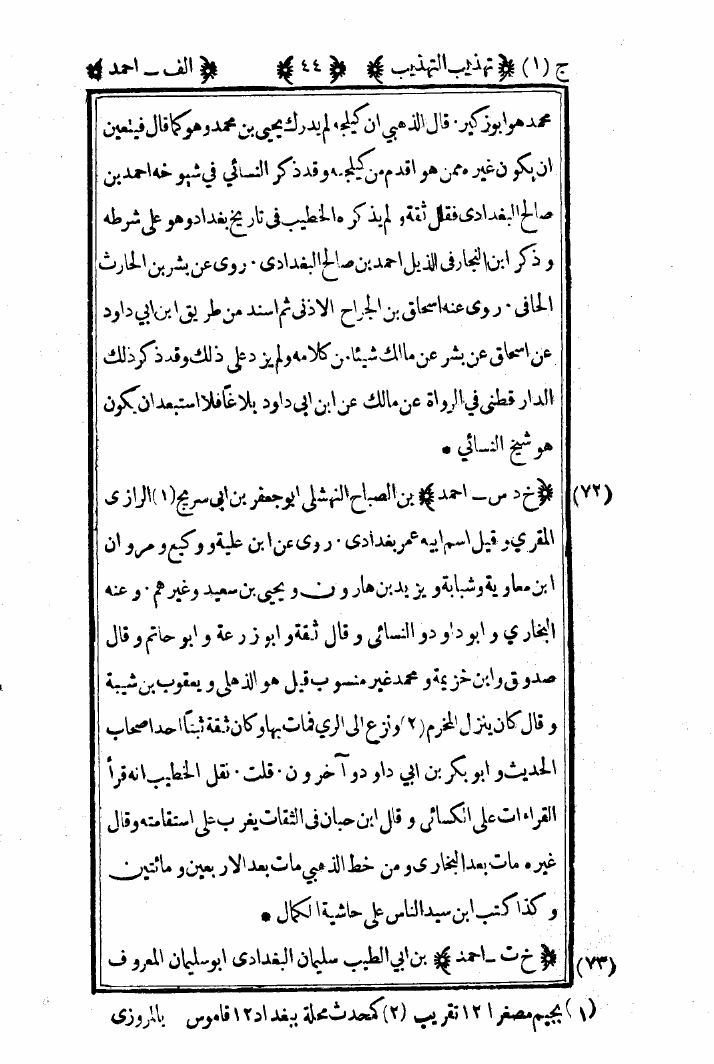 ج (١) ﴿ تهذيب التهذيب ﴾ ﴿ ٤٤ ﴾ ﴿ الف ــ احمد ﴾
محمد هو ابو زكير ٠ قال الذهبي ان كيلجه لم يدرك يحيى بن محمد وهو كما قال فيتعين
ان يكون غيره ممن هو اقدم من كيلجه وقد ذكر النسائي في شيوخه احمد بن
صالح البغدادى فقال ثقة و لم يذكره الخطيب فى تاريخ بغداد و هو على شرطه
و ذكر ابن النجار فى الذيل احمد بن صالح البغدادى ٠ روى عن بشر بن الحارث
الحافى ٠ روى عنه اسحاق بن الجراح الاذنى ثم اسند من طريق ابن ابي داود
عن اسحاق عن بشر عن مالك شيئا من كلامه ولم يزد على ذلك وقد ذكر ذلك
الدار قطنى في الرواة عن مالك عن ابن ابى داود بلاغاً فلا استبعد ان يكون
هو شيخ النسائي *
(٧٢) ﴿ خ د س ــ احمد ﴾ بن الصباح النهشلى ابو جعفر بن ابى سريج (١) الرازى
المقري و قيل اسم ابيه عمر بغدادى ٠ روى عن ابن علية و وكيع و مروان
ابن معاوية و شبابة و يزيد بن هارون و يحيى بن سعيد وغيرهم ٠ و عنه
البخاري و ابو داود و النسائى و قال ثقة و ابو زرعة و ابو حاتم و قال
صدوق و ابن خزيمة و محمد غير منسوب قيل هو الذهلى و يعقوب بن شيبة
و قال كان ينزل المخرم (٢) ونزع الى الري فمات بها وكان ثقة ثبتاً احد اصحاب
الحديث و ابو بكر بن ابي داود و آخرون ٠ قلت ٠ نقل الخطيب انه قرأ
القراءات على الكسائى و قال ابن حبان فى الثقات يغرب على استقامته وقال
غيره مات بعد البخارى و من خط الذهبي مات بعد الاربعين و مائتين
و كذا كتب ابن سيد الناس على حاشية الكمال *
(٧٣) ﴿ خ ت ــ احمد ﴾ بن ابي الطيب سليمان البغدادى ابو سليمان المعروف
(١) بجيم مصغرا ١٢ تقريب (٢) كمحدث محلة ببغداد ١٢ قاموس بالمروزى